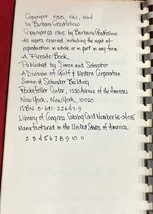 Copyright 1963, 1961, 1964
by Barbara Goodfellow
Copyright © 1965 by Barbara Goodfellow
All rights reserved including the right of
reproduction in whole or in part in any form
A Fireside Book
Published by Simon and Schuster
A Division of Gulf & Western Corporation
Simon & Schuster Building
Rockefeller Center, 1230 Avenue of the Americas
New York, New York, 10020
ISBN 0-671-22647-9
Library of Congress Catalog Card Number 65-21085
Manufactured in the United States of America
2 3 4 5 6 7 8 9 10 11